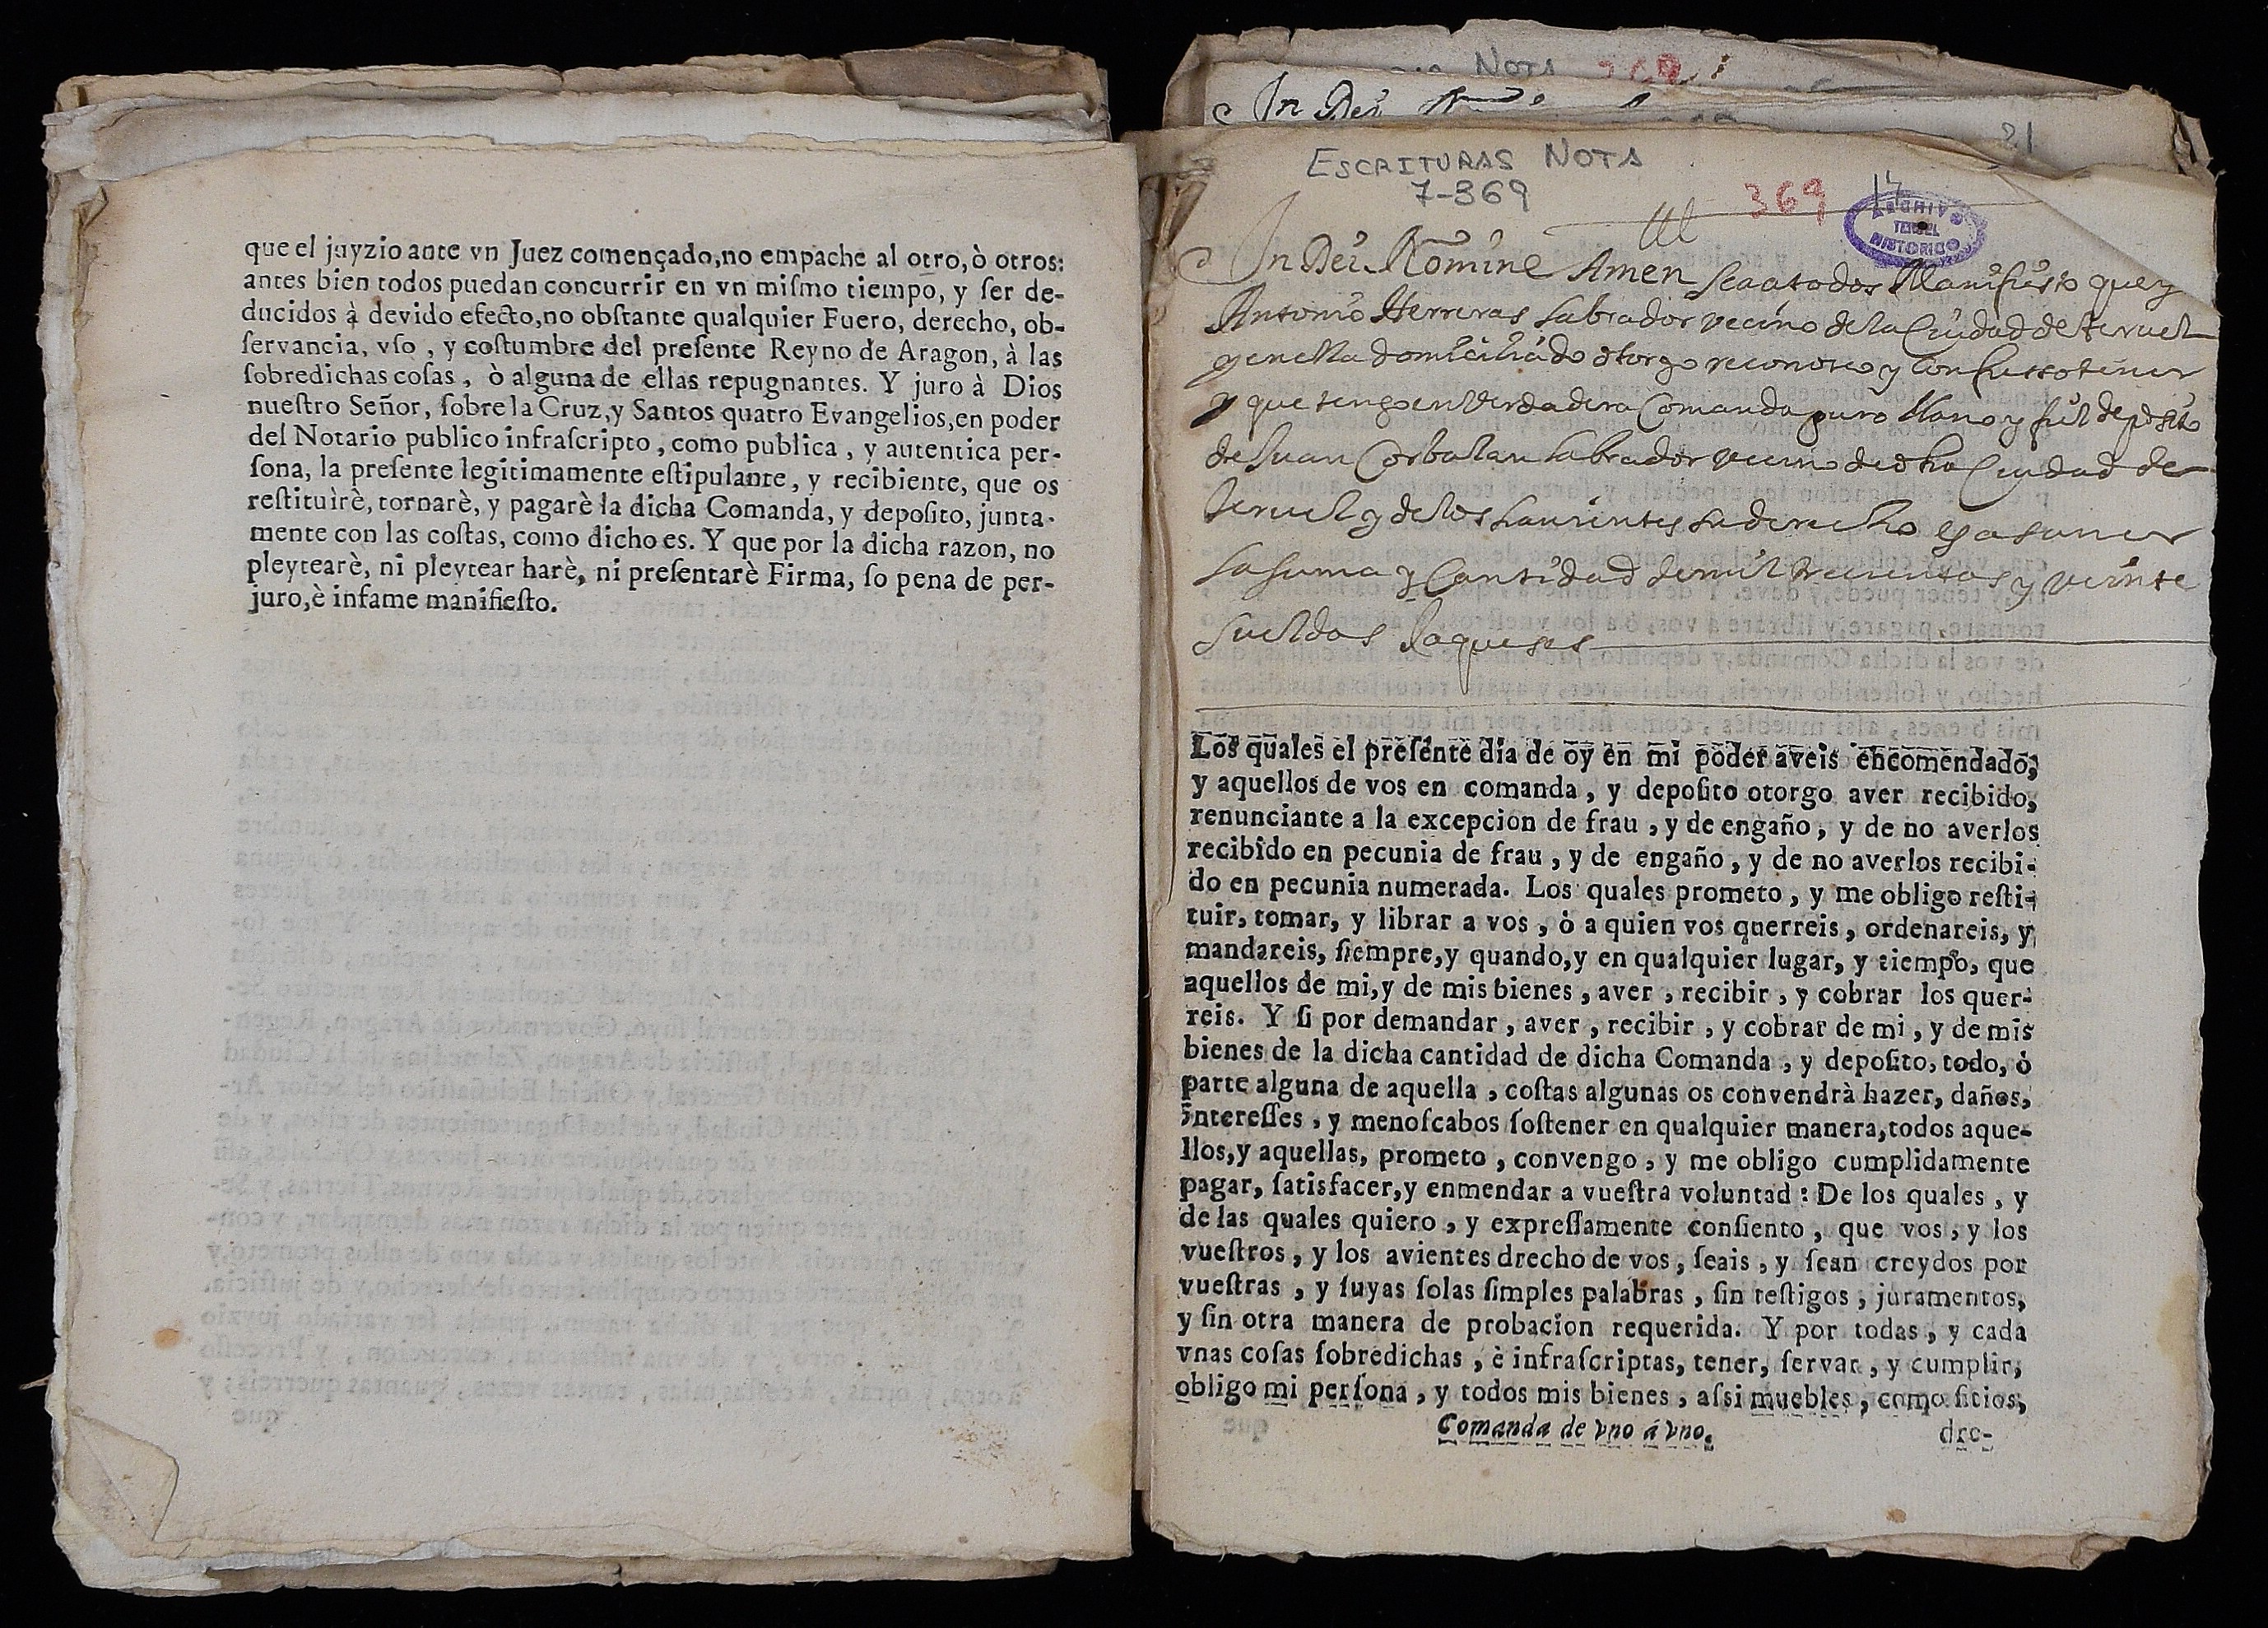 que el juyzio ante vn Juez començado,no empache al otro,ò otros:
antes bien todos puedan concurrir en vn miſmo tiempo, y ſer de-
ducidos à devido efecto,no obſtante qualquier Fuero, derecho, ob-
ſervancia, vſo , y coſtumbre del preſente Reyno de Aragon, à las
ſobredichas coſas , ò alguna de ellas repugnantes. Y juro à Dios
nueſtro Señor, ſobre la Cruz,y Santos quatro Evangelios,en poder
del Notario publico infraſcripto , como publica , y autentica per-
ſona, la preſente legitimamente eſtipulante, y recibiente, que os
reſtituirè, tornarè, y pagarè la dicha Comanda, y depoſito, junta-
mente con las coſtas, como dicho es. Y que por la dicha razon, no
pleytearè, ni pleytear harè, ni preſentarè Firma, ſo pena de per-
juro,è infame manifieſto.
NOTA 369
In Dei
21
ESCRITURAS NOTA
7-369
369 14
ARCHIVO
TERUEL
HISTORICO
In Dei Nomine Amen sea a todos Manifiesto que y
Antonio Herreras labrador vecino de la Ciudad de teruel
y en ella domiciliado otorgo reconosco y confiesso tener
y que tengo en Verdadera Comanda puro llano y fiel deposito
de Juan Corbalan labrador vecino de dha Ciudad de
teruel y de los havientes su derecho es a saver
la suma y Cantidad de mil trecientos y veinte
sueldos Jaqueses
Los quales el preſente dia de oy en mi poder aveis encomendado,
y aquellos de vos en comanda , y depoſito otorgo aver recibido,
renunciante a la excepcion de frau , y de engaño , y de no averlos
recibido en pecunia de frau , y de engaño , y de no averlos recibi-
do en pecunia numerada. Los quales prometo , y me obligo reſti-
tuir, tomar, y librar a vos , ò a quien vos querreis , ordenareis, y
mandareis, ſiempre,y quando,y en qualquier lugar, y tiempo, que
aquellos de mi,y de mis bienes , aver , recibir , y cobrar los quer-
reis. Y ſi por demandar , aver , recibir , y cobrar de mi , y de mis
bienes de la dicha cantidad de dicha Comanda , y depoſito, todo, ò
parte alguna de aquella , coſtas algunas os convendrà hazer, daños,
intereſſes , y menoſcabos ſoſtener en qualquier manera,todos aque-
llos,y aquellas, prometo , convengo , y me obligo cumplidamente
pagar, ſatisfacer,y enmendar a vueſtra voluntad : De los quales , y
de las quales quiero , y expreſſamente conſiento , que vos , y los
vueſtros , y los avientes drecho de vos , ſeais , y ſean creydos por
vueſtras , y ſuyas ſolas ſimples palabras , ſin teſtigos , juramentos,
y ſin otra manera de probacion requerida. Y por todas , y cada
vnas coſas ſobredichas , è infraſcriptas, tener, ſervar , y cumplir,
obligo mi perſona , y todos mis bienes , aſsi muebles , como ſitios,
Comanda de vno á vno. dre-